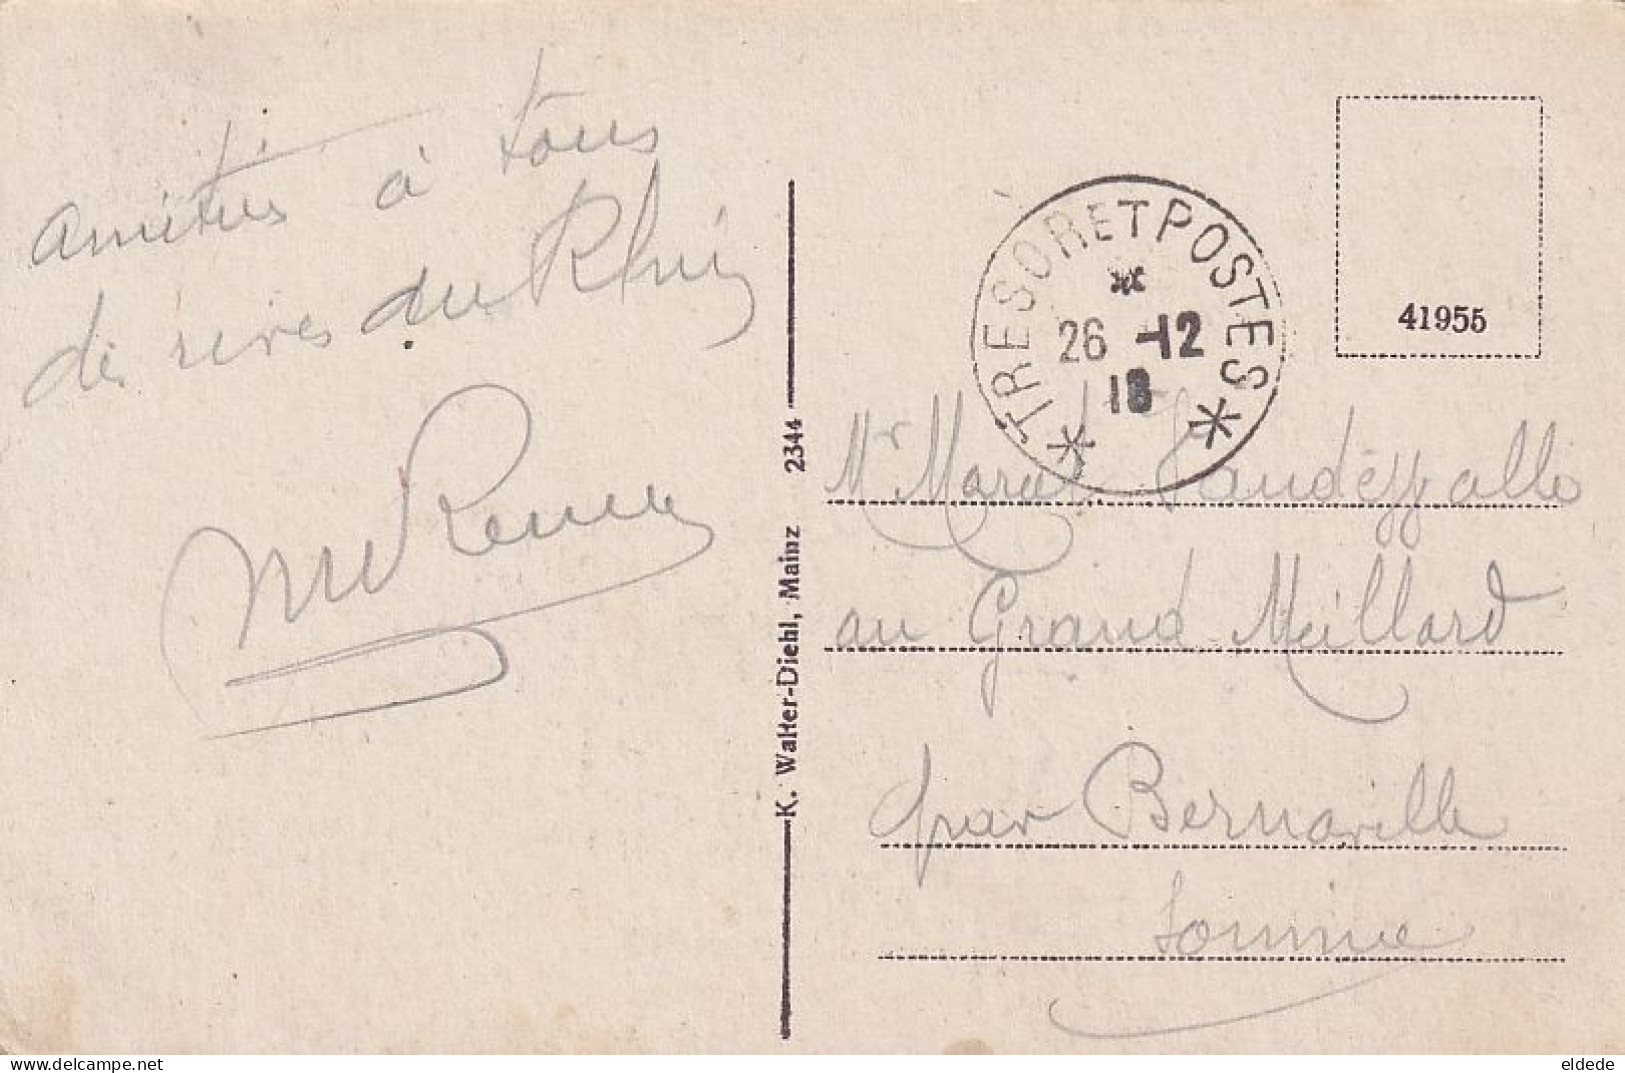 amitiés à tous
de rives du Rhin
K. Walter-Diehl, Mainz 2344
TRESOR ET POSTES
26 -12
18
41955
Mr Marcel
au Grand Meillard
par Bernaville
Somme
delcampe.net
eldede